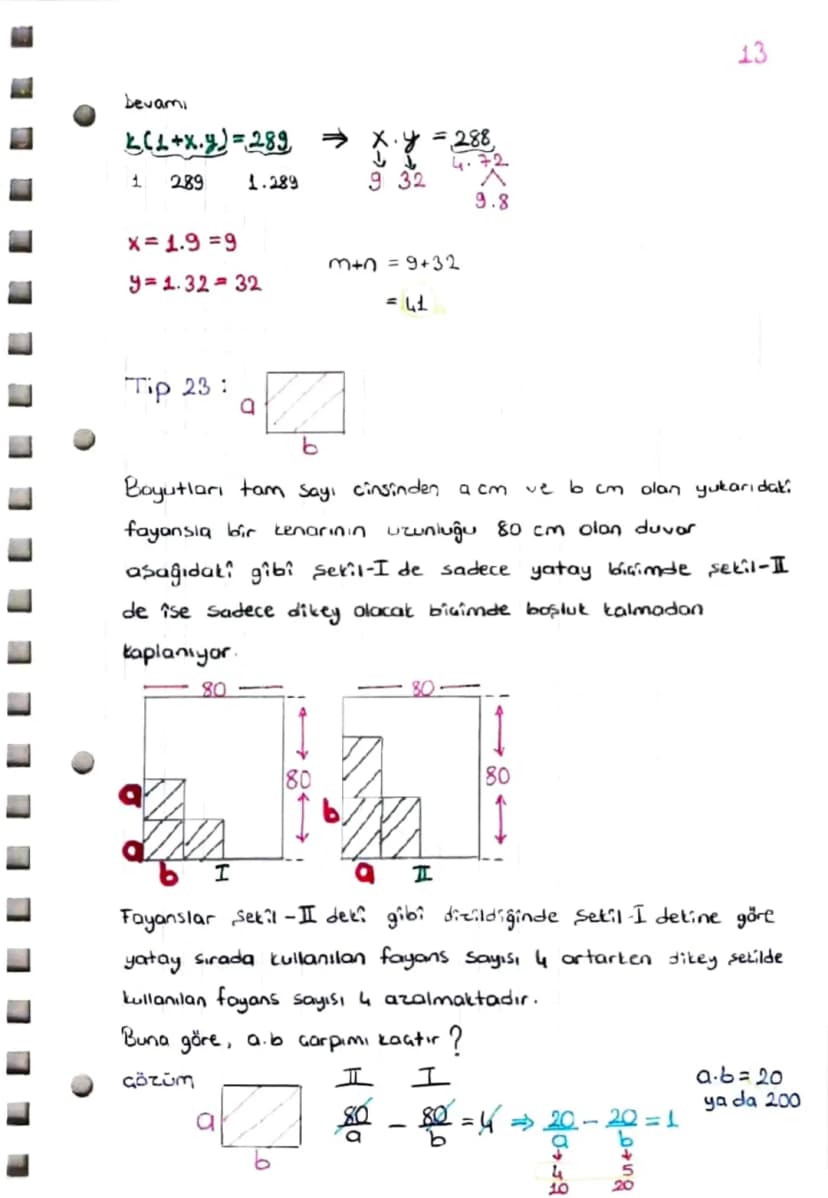 13
Devamı
k(1+x.y)=289 ⇒ x.y = 288
1 289 1.289 ↓ ↓ 4.72
9 32 9.8
x = 1.9 = 9
y = 1.32 = 32
m+n = 9+32
= 41
Tip 23 :
a
b
Boyutları tam sayı cinsinden a cm ve b cm olan yukarıdaki
fayansla bir kenarının uzunluğu 80 cm olan duvar
aşağıdaki gibi şekil-I de sadece yatay biçimde şekil-II
de ise sadece dikey olacak biçimde boşluk kalmadan
kaplanıyor.
80 80
a 80 b 80
a
b I a II
Fayanslar şekil-II deki gibi dizildiğinde şekil-I dekine göre
yatay sırada kullanılan fayans sayısı 4 artarken dikey şekilde
kullanılan fayans sayısı 4 azalmaktadır.
Buna göre, a.b çarpımı kaçtır?
Çözüm II I a.b = 20
a 80/a - 80/b = 4 ⇒ 20/a - 20/b = 1 ya da 200
b ↓ ↓
4 5
10 20